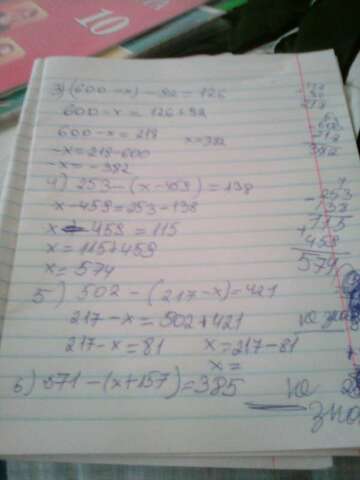 10
3) (600-x)-92=126
600-x=126+92
600-x=218 x=382
-x=218-600
-x=-382
4) 253-(x-459)=138
x-459=253-138
x-459=115
x=115+459
x=574
5) 502-(217-x)=421
217-x=502+421
217-x=81 x=217-81
x=
6) 871-(x+157)=385 не
253
138
115
459
574